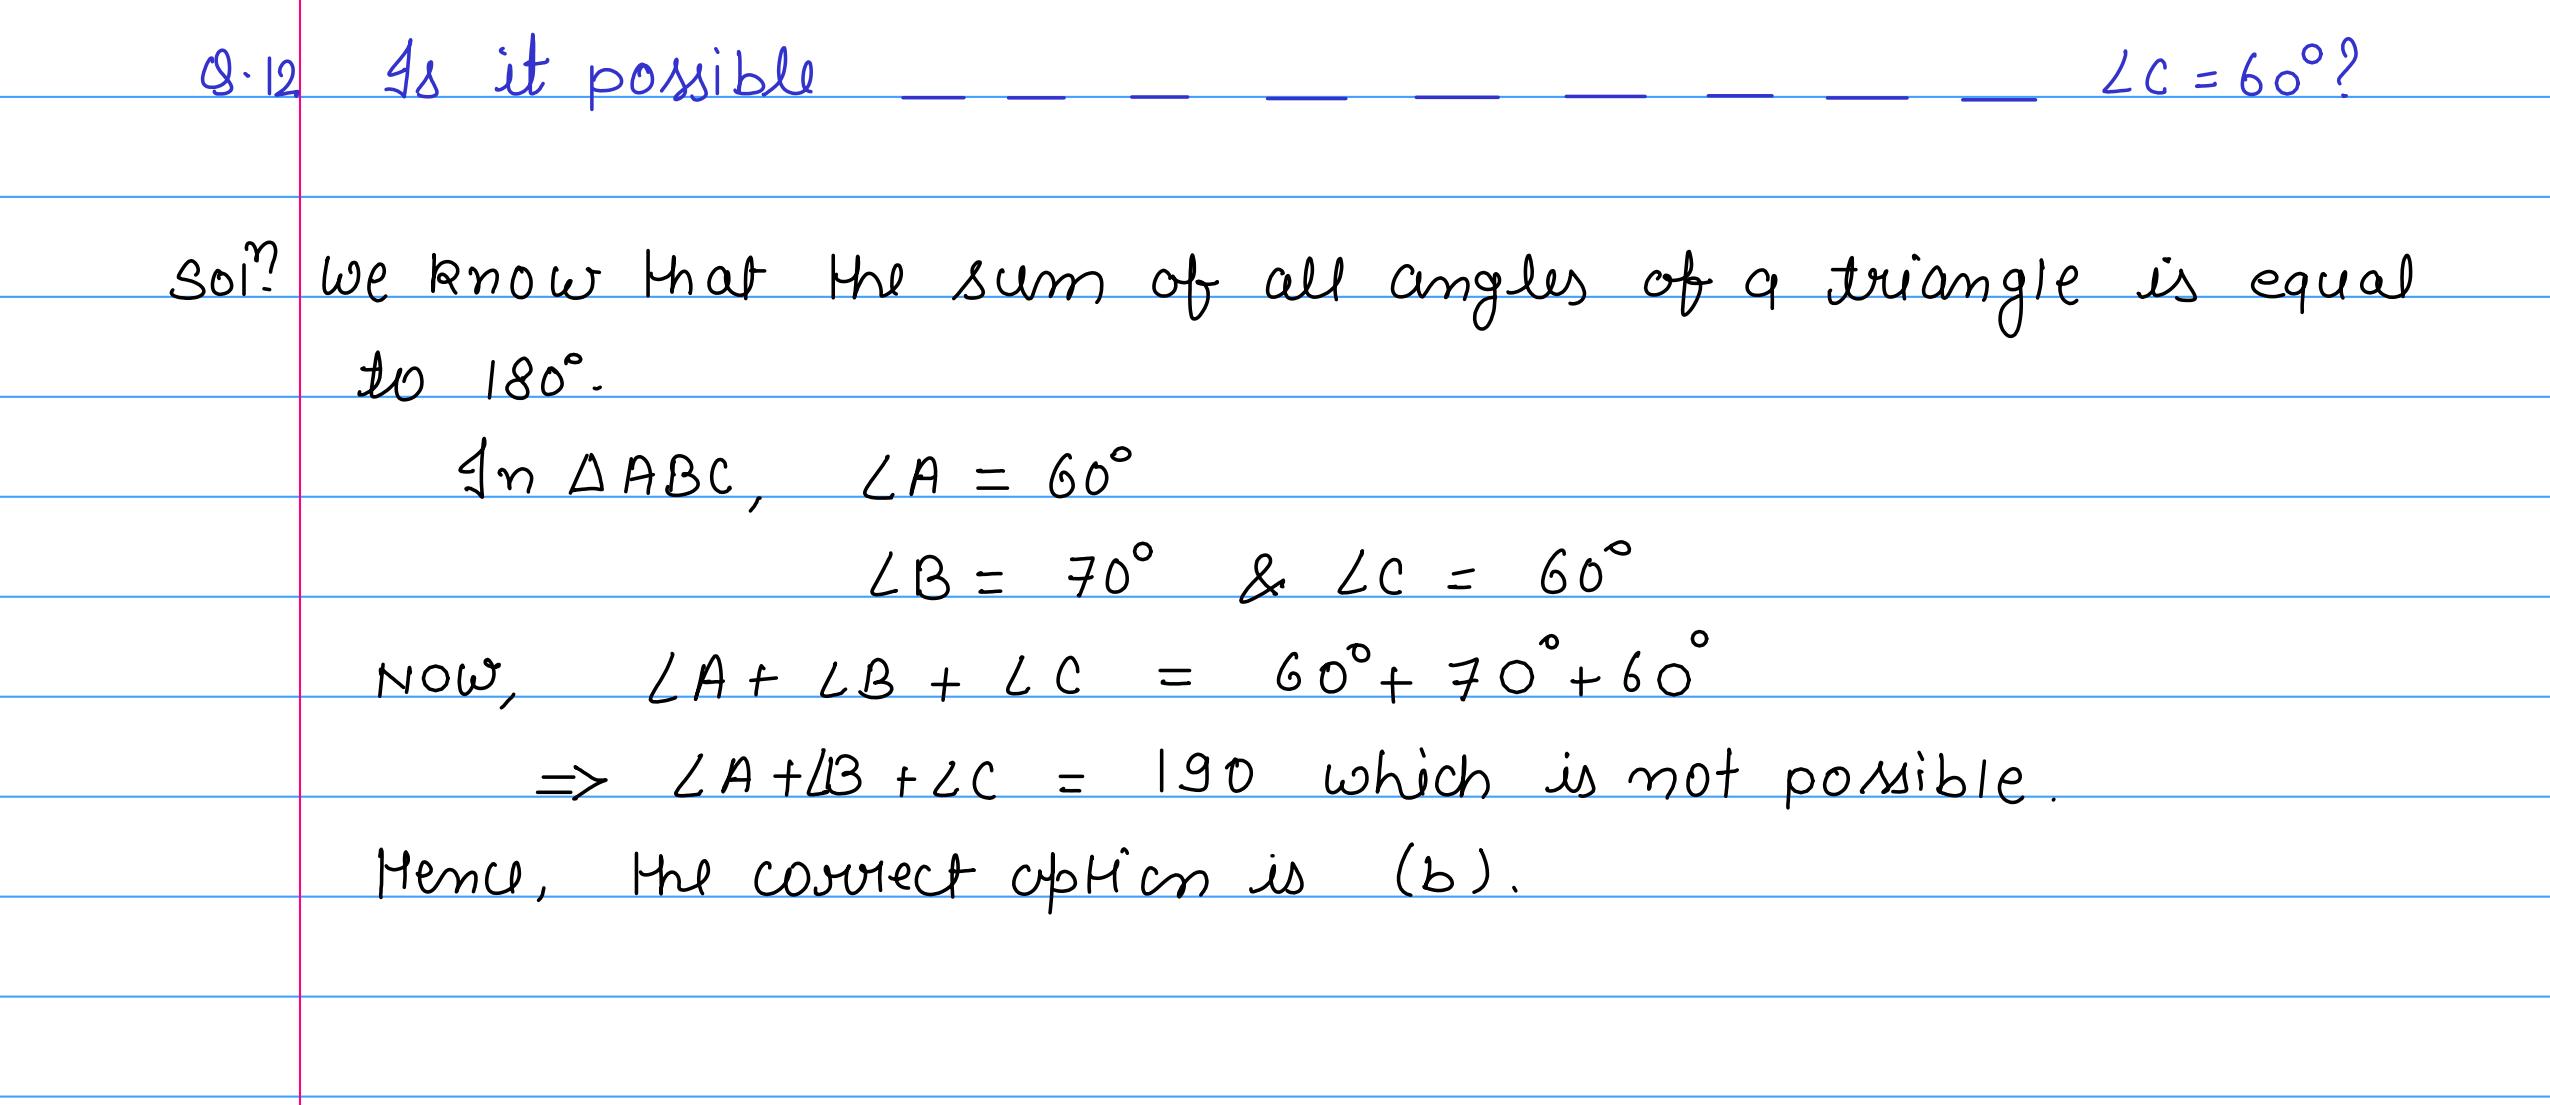 Q.12 Is it possible _ _ _ _ _ _ _ _ _ ∠C = 60°?
Solⁿ. we know that the sum of all angles of a triangle is equal
to 180°.
In △ABC, ∠A = 60°
∠B = 70° & ∠C = 60°
NOW, ∠A + ∠B + ∠C = 60° + 70° + 60°
⇒ ∠A + ∠B + ∠C = 190 which is not possible.
Hence, the correct option is (b).